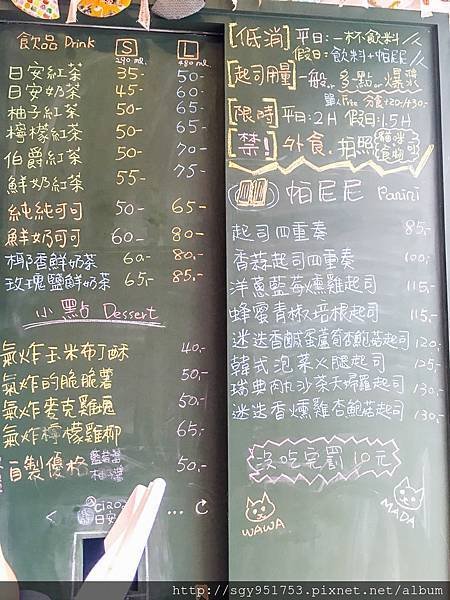 飲品 Drink S L
290 ml. 480 ml.
日安紅茶 35- 50-
日安奶茶 45- 60-
柚子紅茶 50- 65-
檸檬紅茶 50- 65-
伯爵紅茶 50- 70-
鮮奶紅茶 55- 75-
純純可可 50- 65-
鮮奶可可 60- 80-
椰香鮮奶茶 60- 80-
玫瑰鹽鮮奶茶 65- 85-
小點 Dessert
氣炸玉米布丁酥 40.-
氣炸的脆脆薯 50.-
氣炸麥克雞塊 50.-
氣炸檸檬雞柳 65.-
自製優格 50.-
ciao
日安
[低消] 平日:一杯飲料
假日:飲料+帕尼尼
[起司用量] 一般or多點or爆漿
[限時] 平日:2H 假日:1.5H
[禁!] 外食.拍照
帕尼尼 Panini
起司四重奏 85.-
香蒜起司四重奏 100.-
洋蔥藍莓燻雞起司 115.-
蜂蜜青椒培根起司 115.-
迷迭香鹹蛋蘆筍杏鮑菇起司 120.-
韓式泡菜火腿起司 125.-
瑞典肉丸沙茶天婦羅起司 130.-
迷迭香燻雞杏鮑菇起司 130.-
沒吃完罰10元
WAWA MADA
http://sgy951753.pixnet.net/album